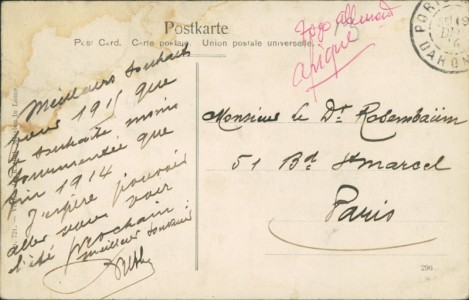 Postkarte
Post Card. Carte postale. Union postale universelle.
Togo Allemand
afrique
PORT
DAHOM
Meilleurs souhaits
pour 1915 que
je souhaite moins
tourmentée que
fin 1914
J'espère pouvoir
aller vous voir
l'été prochain
meilleur souvenir
Monsieur le Dr Rosembaüm
51 Bd St Marcel
Paris
296